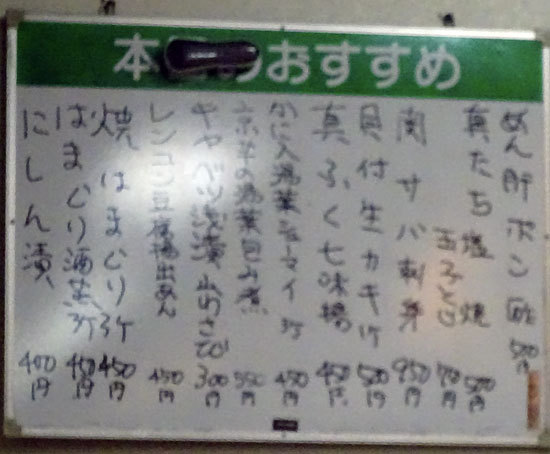 本 のおすすめ
あん肝ポン酢 500円
真たち塩焼 500円
玉子とじ 700円
関サバ刺身 950円
貝付生カキ 500円
真ふぐ七味揚 450円
かに入湯葉シューマイ 450円
京芋の湯葉包み煮 550円
キャベツ浅漬 300円
レンコン豆腐揚出あん 450円
焼はまぐり3ケ 450円
はまぐり酒蒸3ケ 450円
にしん漬 400円